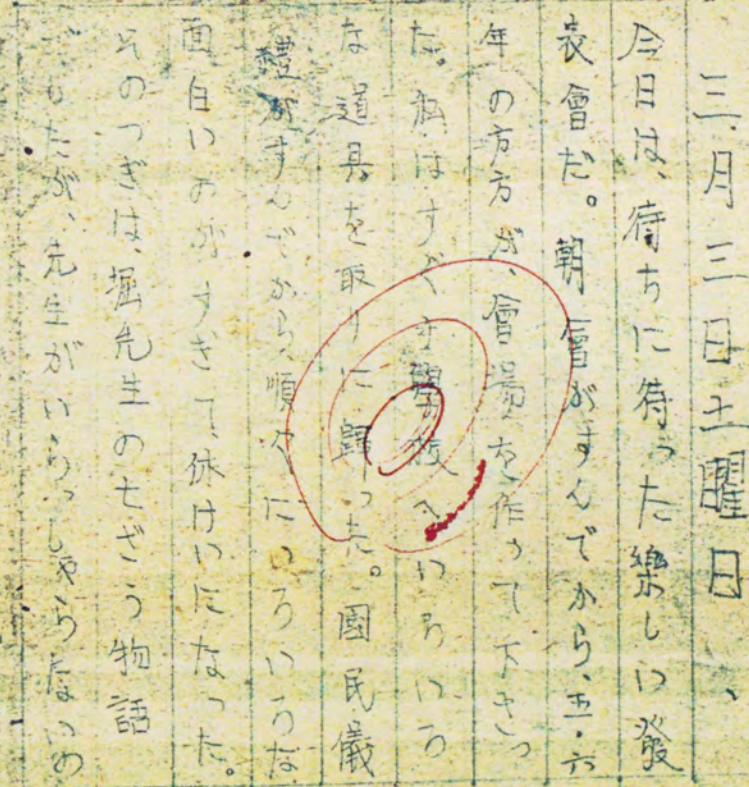 三月三日土曜日、
今日は、待ちに待った樂しい發
表會だ。朝會がすんでから、五・六
年の方方が、會場を作って下さっ
た。私はすぐ學校へいろいろ
な道具を取りに歸った。國民儀
禮がすんでから、順々にいろいろな
面白いのがすぎて、休けいになった。
そのつぎは、堀先生のもぞう物語
でしたが、先生がいらっしゃらないの